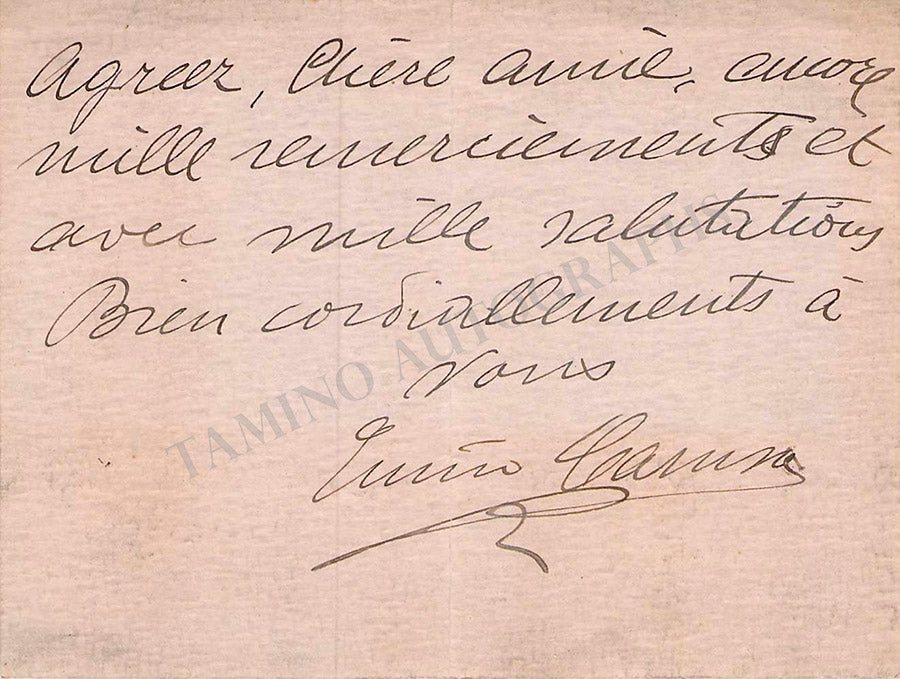 Agreez, Chère amie, encore
mille remerciements et
avec mille salutations
Bien cordiallements à
vous
Enrico Caruso
TAMINO AUTOGRAPHS